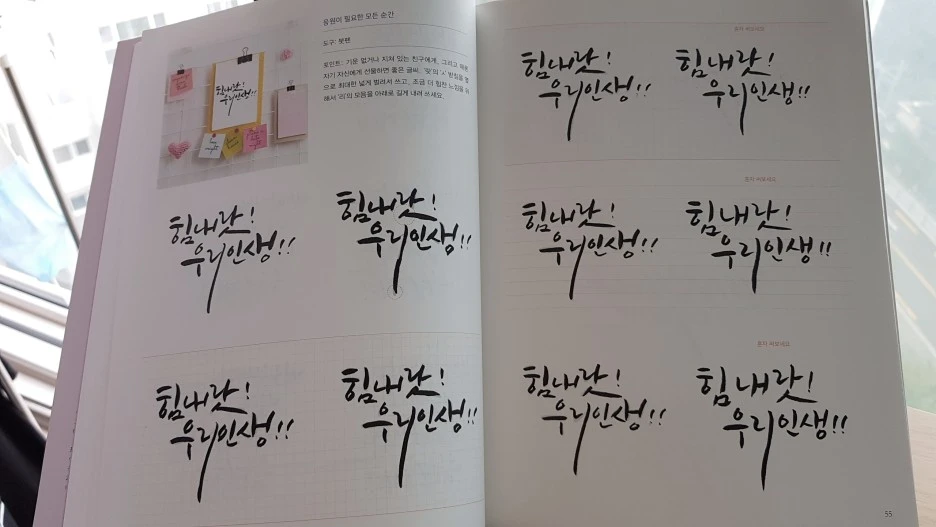 응원이 필요한 모든 순간
도구: 붓펜
포인트: 기운 없거나 지쳐 있는 친구에게, 그리고 때론
자기 자신에게 선물하면 좋은 글씨. '랏'의 'ㅅ' 받침을 옆
으로 최대한 넓게 벌려서 쓰고, 조금 더 힘찬 느낌을 위
해서 '리'의 모음을 아래로 길게 내려 쓰세요.
힘내랏!
우리인생!!
힘내랏!
우리인생!!
힘내랏!
우리인생!!
힘내랏!
우리인생!!
힘내랏!
우리인생!!
혼자 써보세요
힘내랏!
우리인생!!
힘내랏!
우리인생!!
혼자 써보세요
힘내랏!
우리인생!!
힘내랏!
우리인생!!
혼자 써보세요
힘내랏!
우리인생!!
힘내랏!
우리인생!!
55